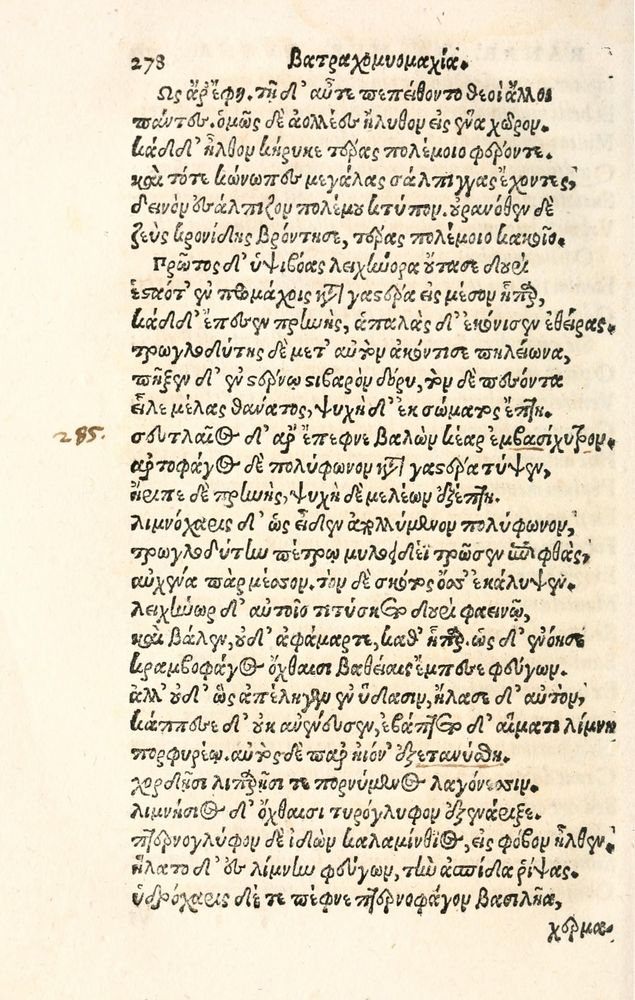 278 Βατραχομυομαχία.
Ως ἄρ ἔφη. τῇ δ' αὖτε πεπείθοντο θεοὶ ἄλλοι
πάντες. ὁμῶς δὲ ἀολλέες ἤλυθον εἰς ἕνα χῶρον.
κὰδ δ' ἦλθον κήρυκε τέρας πολέμοιο φέροντε.
καὶ τότε κώνωπες μεγάλας σάλπιγγας ἔχοντες,
δεινὸν ἐσάλπιζον πολέμου κτύπον. οὐρανόθεν δὲ
ζεὺς κρονίδης βρόντησε, τέρας πολέμοιο κακοῖο.
Πρῶτος δ' ὑψιβόας λειχήνορα οὔτασε δουρὶ
ἑσταότ' ἐν προμάχοις κατὰ γαστέρα εἰς μέσον ἧπαρ,
κὰδ δ' ἔπεσεν πρηνής, ἁπαλὰς δ' ἐκόνισεν ἐθείρας.
τρωγλοδύτης δὲ μετ' αὐτὸν ἀκόντισε πηλείωνα,
πῆξεν δ' ἐν στέρνῳ στιβαρὸν δόρυ, τὸν δὲ πεσόντα
εἷλε μέλας θάνατος, ψυχὴ δ' ἐκ σώματος ἔπτη.
285. σευτλαῖος δ' ἄρ ἔπεφνε βαλὼν κέαρ ἐμβασίχυτρον.
ἀρτοφάγος δὲ πολύφωνον κατὰ γαστέρα τύψεν,
ἤριπε δὲ πρηνής, ψυχὴ δὲ μελέων ἐξέπτη.
λιμνόχαρις δ' ὡς εἶδεν ἀπολλύμενον πολύφωνον,
τρωγλοδύτην πέτρῳ μυλοειδέϊ τρῶσεν ἐπιφθὰς,
αὐχένα πὰρ μέσσον. τὸν δὲ σκότος ὄσσ' ἐκάλυψεν.
λειχήνωρ δ' αὐτοῖο τιτύσκετο δουρὶ φαεινῷ,
καὶ βάλεν, οὐδ' ἀφάμαρτε, καθ' ἧπαρ. ὡς δ' ἐνόησε
κραμβοφάγος ὄχθαισι βαθείαις ἔμπεσε φεύγων.
ἀλλ' οὐδ' ὣς ἀπέληγεν ἐν ὕδασιν, ἤλασε δ' αὐτον,
κάππεσε δ' οὐκ ἀνένευσεν, ἐβάπτετο δ' αἵματι λίμνη
πορφυρέῳ. αὐτὸς δὲ παρ ἠιόν' ἐξετανύσθη.
χορδῇσι λιπαρῇσι τε πορνύμενος λαγόνεσσιν.
λιμνήσιος δ' ὄχθαισι τυρόγλυφον ἐξενάριξε.
πτερνογλύφον δὲ ἰδὼν καλαμίνθιος, εἰς φόβον ἦλθεν,
ἥλατο δ' ἐς λίμνην φεύγων, τὴν ἀσπίδα ῥίψας.
ὑδρόχαρις δέ τε πέφνε πτερνοφάγον βασιλῆα,
χερμα-